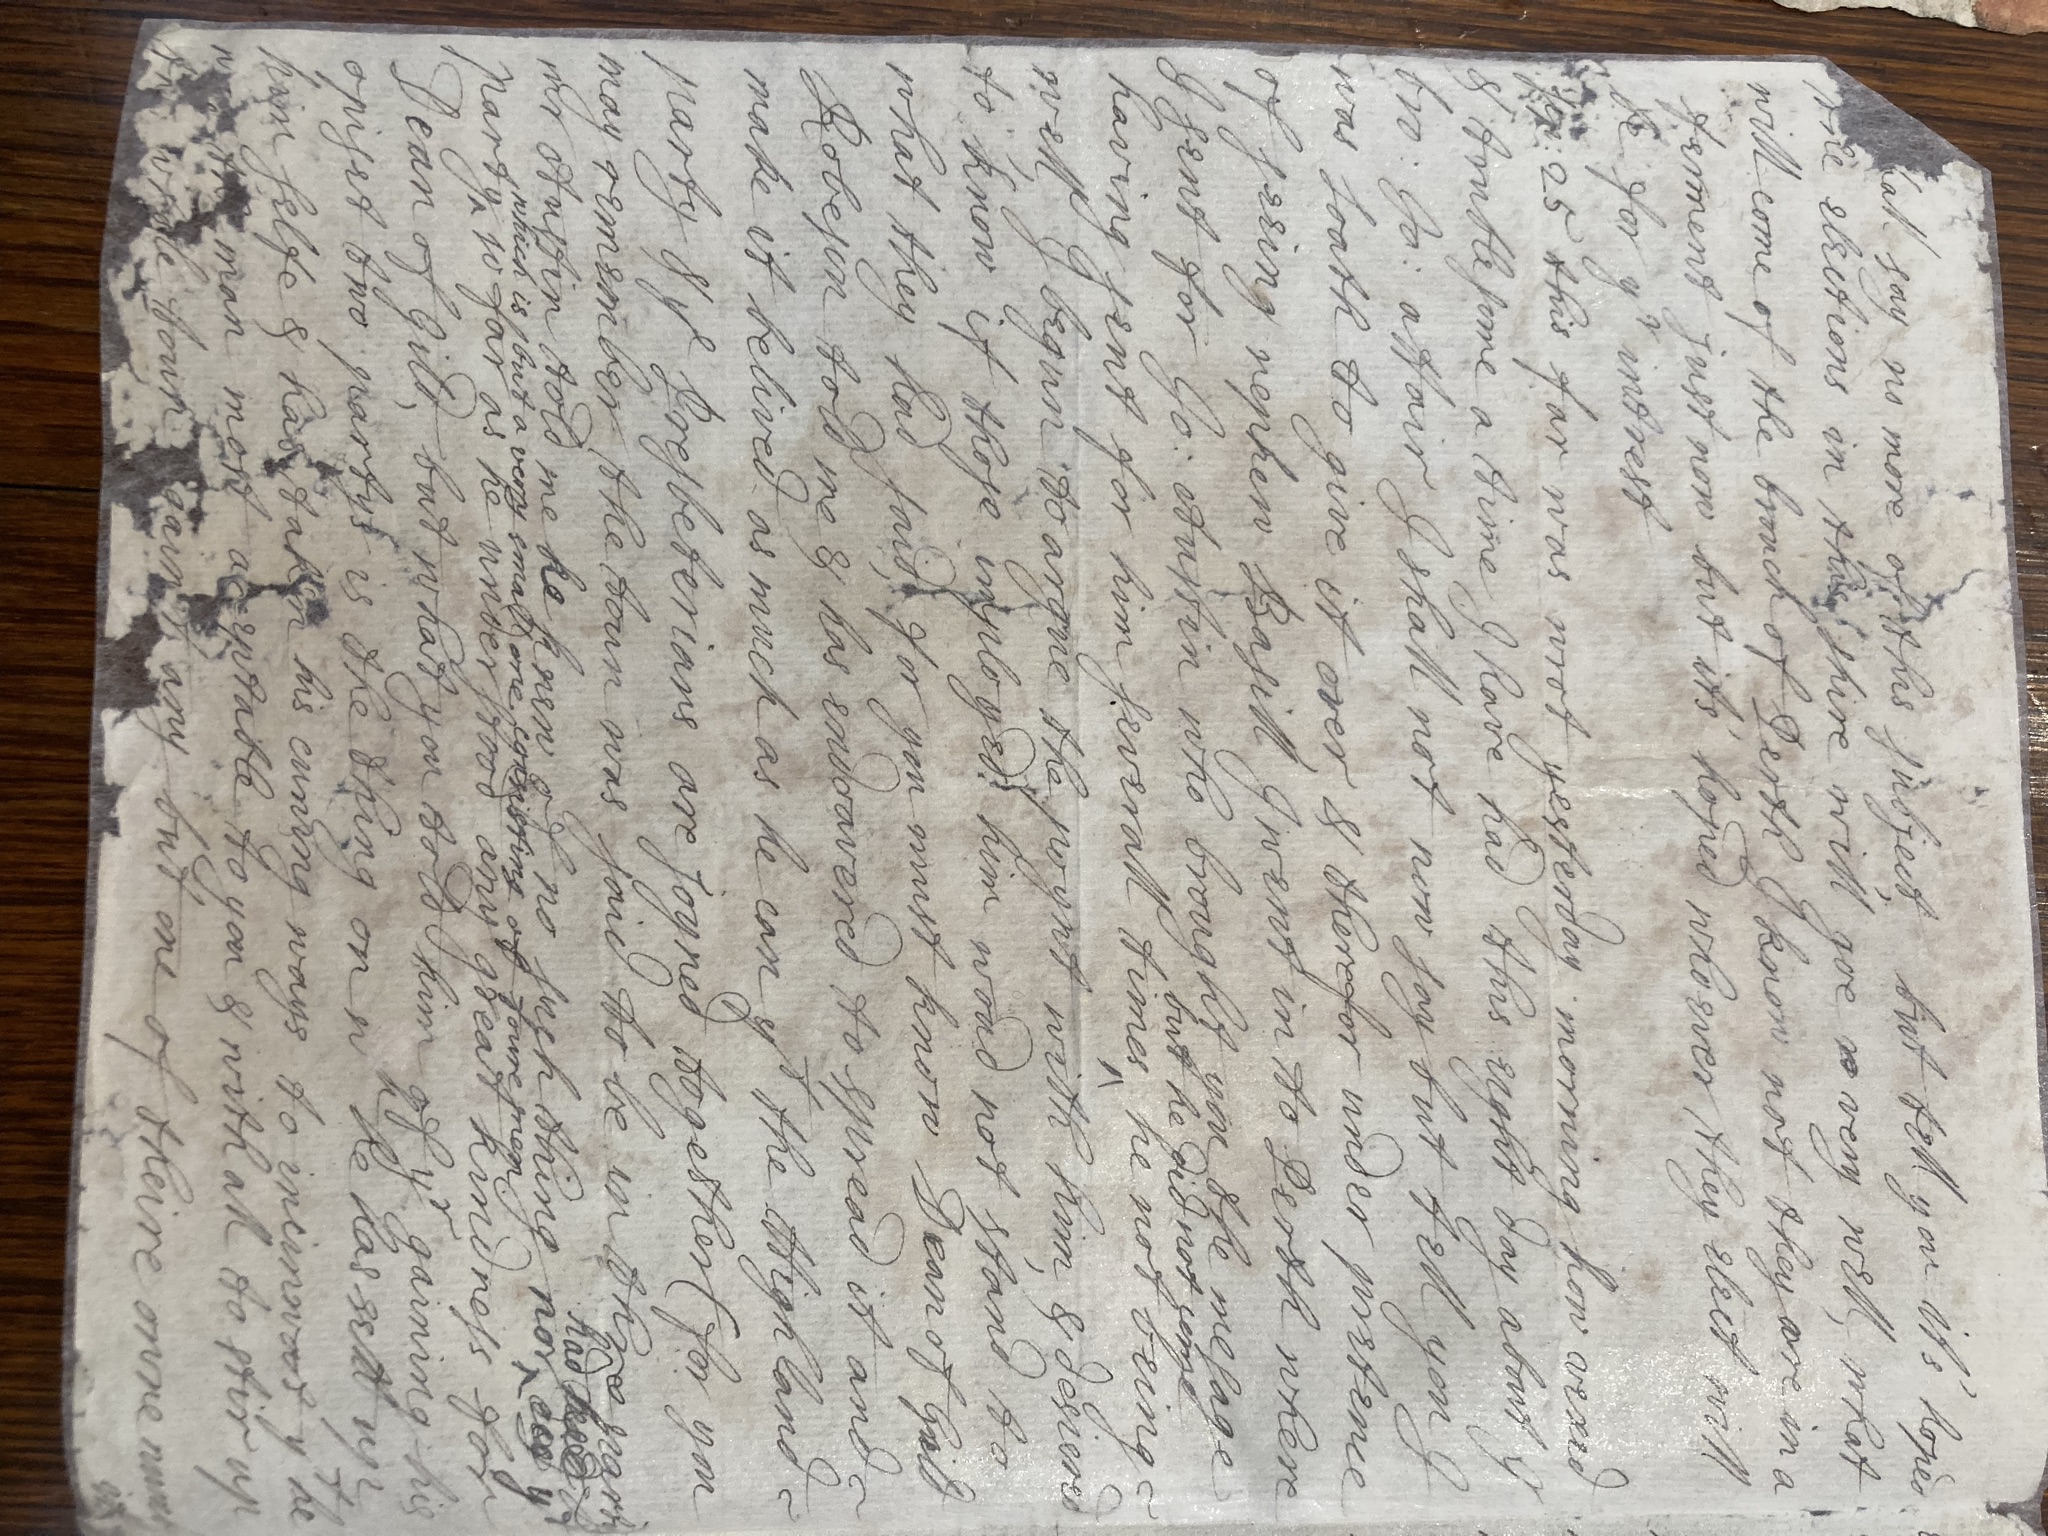 hall say no more of this subject, but tell you it's hoped
the elections in this shire will goe very well, what
will come of the brouch of Perth I know not they are in a
ferment just now but it's hoped whoever they elect will
be for yr intrest
Sep: 25 this far was wrot yesterday morning how vexed
& trublesome a time I have had this eight day about
bro: Jo: affair I shall not now say but tell you I
was loath to give it over, & therefor under pretence
of seeing nephew Basill I went in to Perth where
I sent for Jo: Austin who brought you the mesage
but he did not come
having sent for him severall times, he not being
well, I begun to argue the poynt with him, & desiered
to know if those imployed him woud not stand to
what they had said, for you must know Dean of Gild
Robeson told me & has endeavered to spread it and
make it belived as much as he can yt the Highland
party & ye Presbeterians are joyned together (for you
may remember the toun was said to be in three part
had
mr Austin told me he knew of no such thing nor y
which is but a very small one consisting of foure men
party so far as he understood any great kindness for
Dean of Gild, but what you told him of yr gaining his
opiset two partys is the thing on wh he has sett up
him selfe & has takin his cuning ways to incinwat yt he
was the man most aceptable to you & with all to stir up
the whole toun against any but one of theire owne